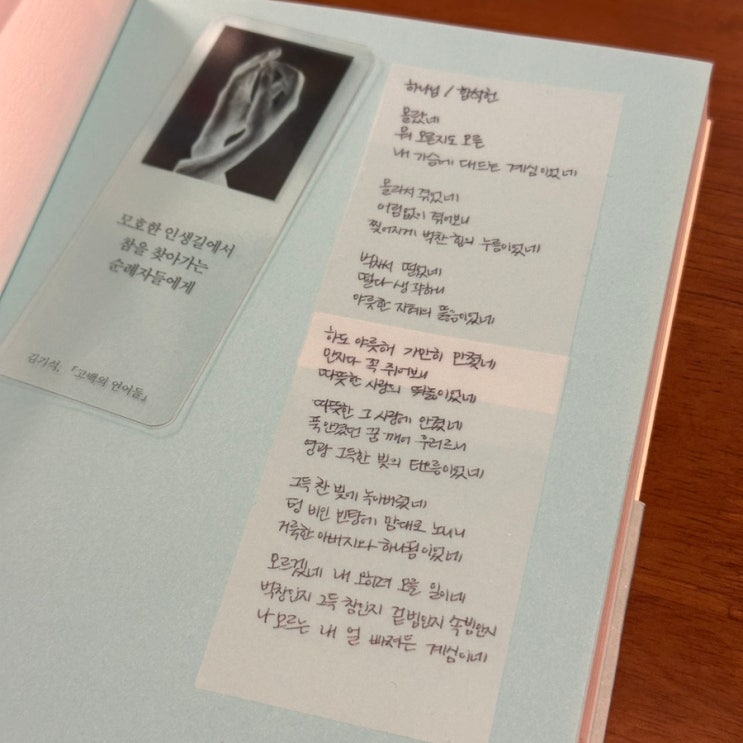 모호한 인생길에서
참을 찾아가는
순례자들에게
김기석, 『고백의 언어들』
하나님 / 함석헌
몰랐네
뭐 모른지도 모른
내 가슴에 대드는 계심이었네
몰라서 겪었네
어림없이 겪어보니
찢어지게 벅찬 힘의 누름이었네
벅차서 떨었네
떨다 생각하니
야릇한 지혜의 뚫음이었네
하도 야릇해 가만히 만졌네
만지다 꼭 쥐어보니
따뜻한 사랑의 뛰놂이었네
따뜻한 그 사랑에 안겼네
푹 안겼던 꿈 깨어 우러르니
영광 그득한 빛의 타오름이었네
그득 찬 빛에 녹아버렸네
텅 비인 빈탕에 맘대로 노니니
거룩한 아버지와 하나됨이었네
모르겠네 내 오히려 모를 일이네
벅참인지 그득 참인지 겉빔인지 속빔인지
나 모르는 내 얼 빠져든 계심이네